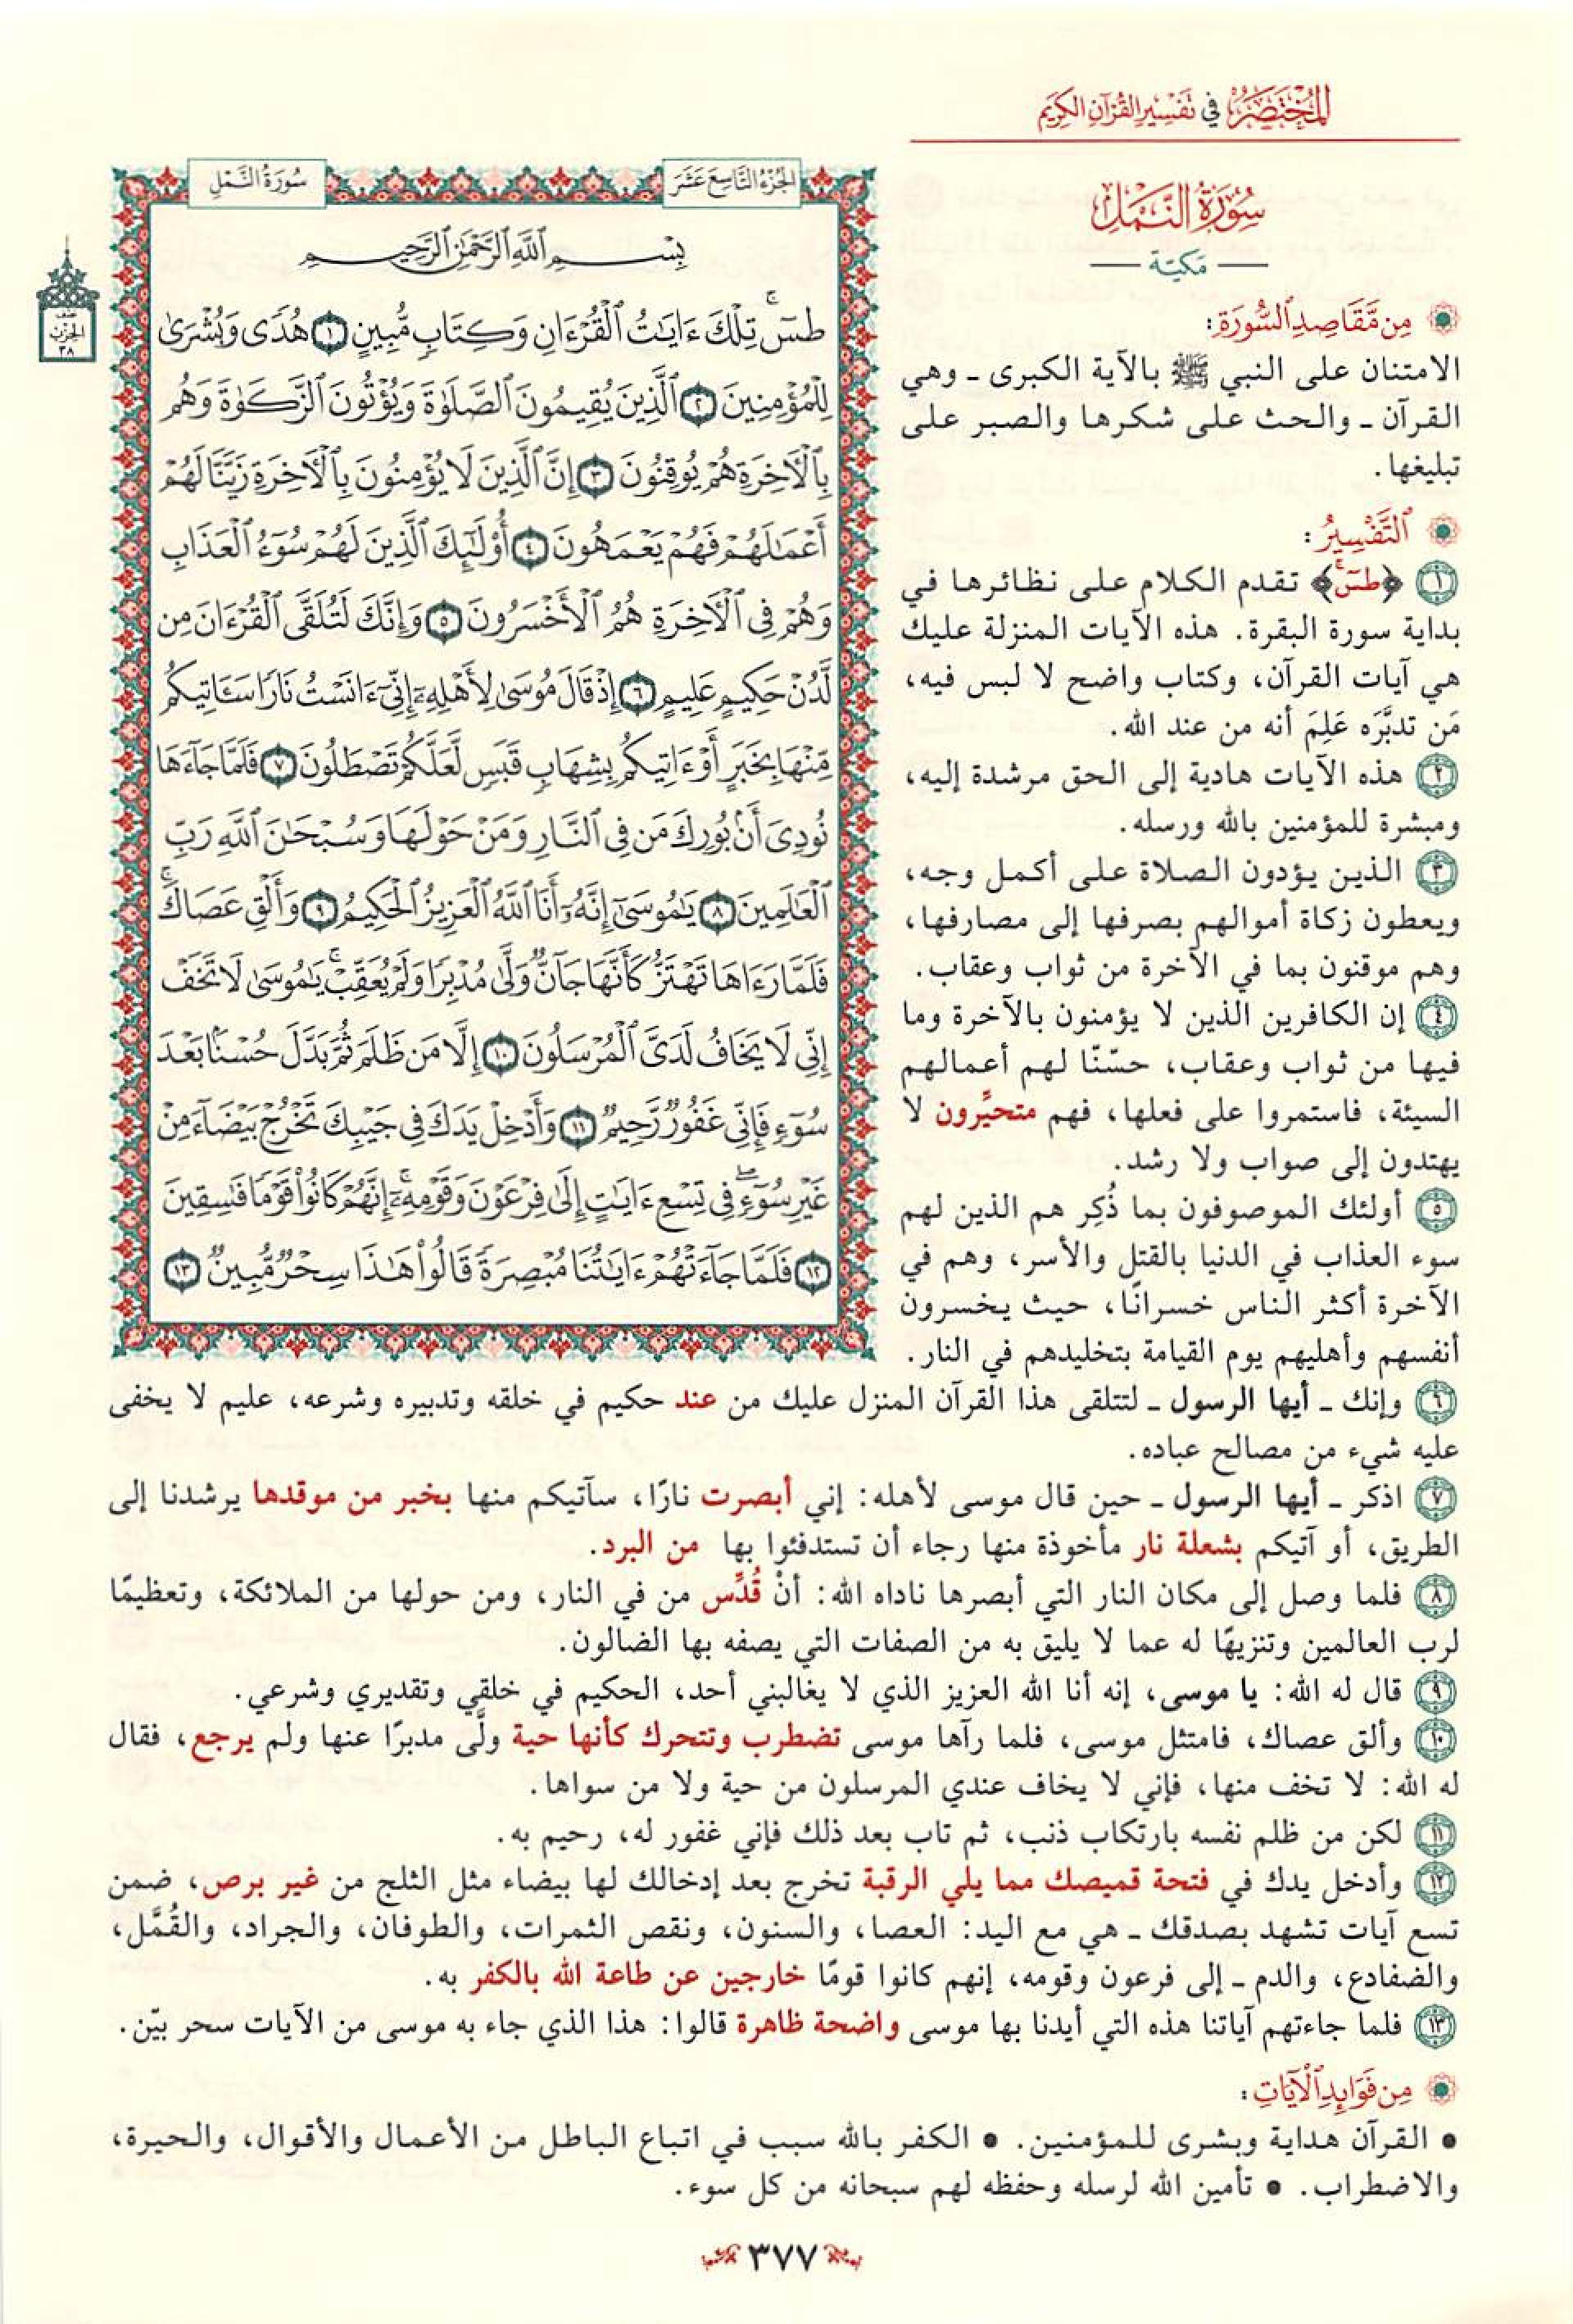 المختصر في تفسير القرآن الكريم
سورة النمل
مكية
من مقاصد السورة:
الامتنان على النبي ﷺ بالآية الكبرى ـ وهي
القرآن ـ والحث على شكرها والصبر على
تبليغها.
التفسير:
١ ﴿طسٓۚ﴾ تقدم الكلام على نظائرها في
بداية سورة البقرة. هذه الآيات المنزلة عليك
هي آيات القرآن، وكتاب واضح لا لبس فيه،
مَن تدبَّرَه عَلِمَ أنه من عند الله.
٢ هذه الآيات هادية إلى الحق مرشدة إليه،
ومبشرة للمؤمنين بالله ورسله.
٣ الذين يؤدون الصلاة على أكمل وجه،
ويعطون زكاة أموالهم بصرفها إلى مصارفها،
وهم موقنون بما في الآخرة من ثواب وعقاب.
٤ إن الكافرين الذين لا يؤمنون بالآخرة وما
فيها من ثواب وعقاب، حسّنّا لهم أعمالهم
السيئة، فاستمروا على فعلها، فهم متحيِّرون لا
يهتدون إلى صواب ولا رشد.
٥ أولئك الموصوفون بما ذُكِر هم الذين لهم
سوء العذاب في الدنيا بالقتل والأسر، وهم في
الآخرة أكثر الناس خسرانًا، حيث يخسرون
أنفسهم وأهليهم يوم القيامة بتخليدهم في النار.
الجزء التاسع عشر
سورة النمل
نصف
الحزب
٣٨
بِسْمِ ٱللَّهِ ٱلرَّحْمَٰنِ ٱلرَّحِيمِ
طسٓۚ تِلْكَ ءَايَٰتُ ٱلْقُرْءَانِ وَكِتَابٖ مُّبِينٍ ١ هُدٗى وَبُشْرَىٰ
لِلْمُؤْمِنِينَ ٢ ٱلَّذِينَ يُقِيمُونَ ٱلصَّلَوٰةَ وَيُؤْتُونَ ٱلزَّكَوٰةَ وَهُم
بِٱلْأٓخِرَةِ هُمْ يُوقِنُونَ ٣ إِنَّ ٱلَّذِينَ لَا يُؤْمِنُونَ بِٱلْأٓخِرَةِ زَيَّنَّا لَهُمْ
أَعْمَٰلَهُمْ فَهُمْ يَعْمَهُونَ ٤ أُوْلَٰٓئِكَ ٱلَّذِينَ لَهُمْ سُوٓءُ ٱلْعَذَابِ
وَهُمْ فِي ٱلْأٓخِرَةِ هُمُ ٱلْأَخْسَرُونَ ٥ وَإِنَّكَ لَتُلَقَّى ٱلْقُرْءَانَ مِن
لَّدُنْ حَكِيمٍ عَلِيمٍ ٦ إِذْ قَالَ مُوسَىٰ لِأَهْلِهِۦٓ إِنِّيٓ ءَانَسْتُ نَارٗا سَـَٔاتِيكُم
مِّنْهَا بِخَبَرٍ أَوْ ءَاتِيكُم بِشِهَابٖ قَبَسٖ لَّعَلَّكُمْ تَصْطَلُونَ ٧ فَلَمَّا جَآءَهَا
نُودِيَ أَنۢ بُورِكَ مَن فِي ٱلنَّارِ وَمَنْ حَوْلَهَا وَسُبْحَٰنَ ٱللَّهِ رَبِّ
ٱلْعَٰلَمِينَ ٨ يَٰمُوسَىٰٓ إِنَّهُۥٓ أَنَا ٱللَّهُ ٱلْعَزِيزُ ٱلْحَكِيمُ ٩ وَأَلْقِ عَصَاكَۚ
فَلَمَّا رَءَاهَا تَهْتَزُّ كَأَنَّهَا جَآنّٞ وَلَّىٰ مُدْبِرٗا وَلَمْ يُعَقِّبْۚ يَٰمُوسَىٰ لَا تَخَفْ
إِنِّي لَا يَخَافُ لَدَيَّ ٱلْمُرْسَلُونَ ١٠ إِلَّا مَن ظَلَمَ ثُمَّ بَدَّلَ حُسْنَۢا بَعْدَ
سُوٓءٖ فَإِنِّي غَفُورٞ رَّحِيمٞ ١١ وَأَدْخِلْ يَدَكَ فِي جَيْبِكَ تَخْرُجْ بَيْضَآءَ مِنْ
غَيْرِ سُوٓءٖۖ فِي تِسْعِ ءَايَٰتٍ إِلَىٰ فِرْعَوْنَ وَقَوْمِهِۦٓۚ إِنَّهُمْ كَانُواْ قَوْمٗا فَٰسِقِينَ
١٢ فَلَمَّا جَآءَتْهُمْ ءَايَٰتُنَا مُبْصِرَةٗ قَالُواْ هَٰذَا سِحْرٞ مُّبِينٞ ١٣
٦ وإنك ـ أيها الرسول ـ لتتلقى هذا القرآن المنزل عليك من عند حكيم في خلقه وتدبيره وشرعه، عليم لا يخفى
عليه شيء من مصالح عباده.
٧ اذكر ـ أيها الرسول ـ حين قال موسى لأهله: إني أبصرت نارًا، سآتيكم منها بخبر من موقدها يرشدنا إلى
الطريق، أو آتيكم بشعلة نار مأخوذة منها رجاء أن تستدفئوا بها من البرد.
٨ فلما وصل إلى مكان النار التي أبصرها ناداه الله: أنْ قُدِّس من في النار، ومن حولها من الملائكة، وتعظيمًا
لرب العالمين وتنزيهًا له عما لا يليق به من الصفات التي يصفه بها الضالون.
٩ قال له الله: يا موسى، إنه أنا الله العزيز الذي لا يغالبني أحد، الحكيم في خلقي وتقديري وشرعي.
١٠ وألق عصاك، فامتثل موسى، فلما رآها موسى تضطرب وتتحرك كأنها حية ولَّى مدبرًا عنها ولم يرجع، فقال
له الله: لا تخف منها، فإني لا يخاف عندي المرسلون من حية ولا من سواها.
١١ لكن من ظلم نفسه بارتكاب ذنب، ثم تاب بعد ذلك فإني غفور له، رحيم به.
١٢ وأدخل يدك في فتحة قميصك مما يلي الرقبة تخرج بعد إدخالك لها بيضاء مثل الثلج من غير برص، ضمن
تسع آيات تشهد بصدقك ـ هي مع اليد: العصا، والسنون، ونقص الثمرات، والطوفان، والجراد، والقُمَّل،
والضفادع، والدم ـ إلى فرعون وقومه، إنهم كانوا قومًا خارجين عن طاعة الله بالكفر به.
١٣ فلما جاءتهم آياتنا هذه التي أيدنا بها موسى واضحة ظاهرة قالوا: هذا الذي جاء به موسى من الآيات سحر بيّن.
من فوائد الآيات:
• القرآن هداية وبشرى للمؤمنين. • الكفر بالله سبب في اتباع الباطل من الأعمال والأقوال، والحيرة،
والاضطراب. • تأمين الله لرسله وحفظه لهم سبحانه من كل سوء.
٣٧٧